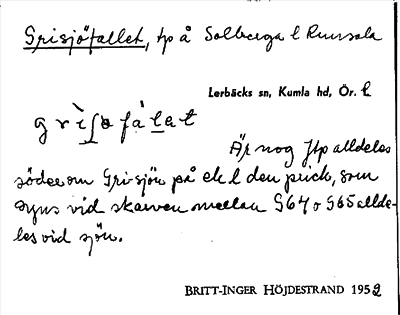 Grisjöfallet, tp å Solberga l Runsala
Lerbäcks sn, Kumla hd, Ör. l
grìʃøfàlet
Är nog ftp alldeles
söder om Grisjön på ek l den prick, som
syns vid skarven mellan S64 o S65 allde-
les vid sjön.
BRITT-INGER HÖJDESTRAND 1952